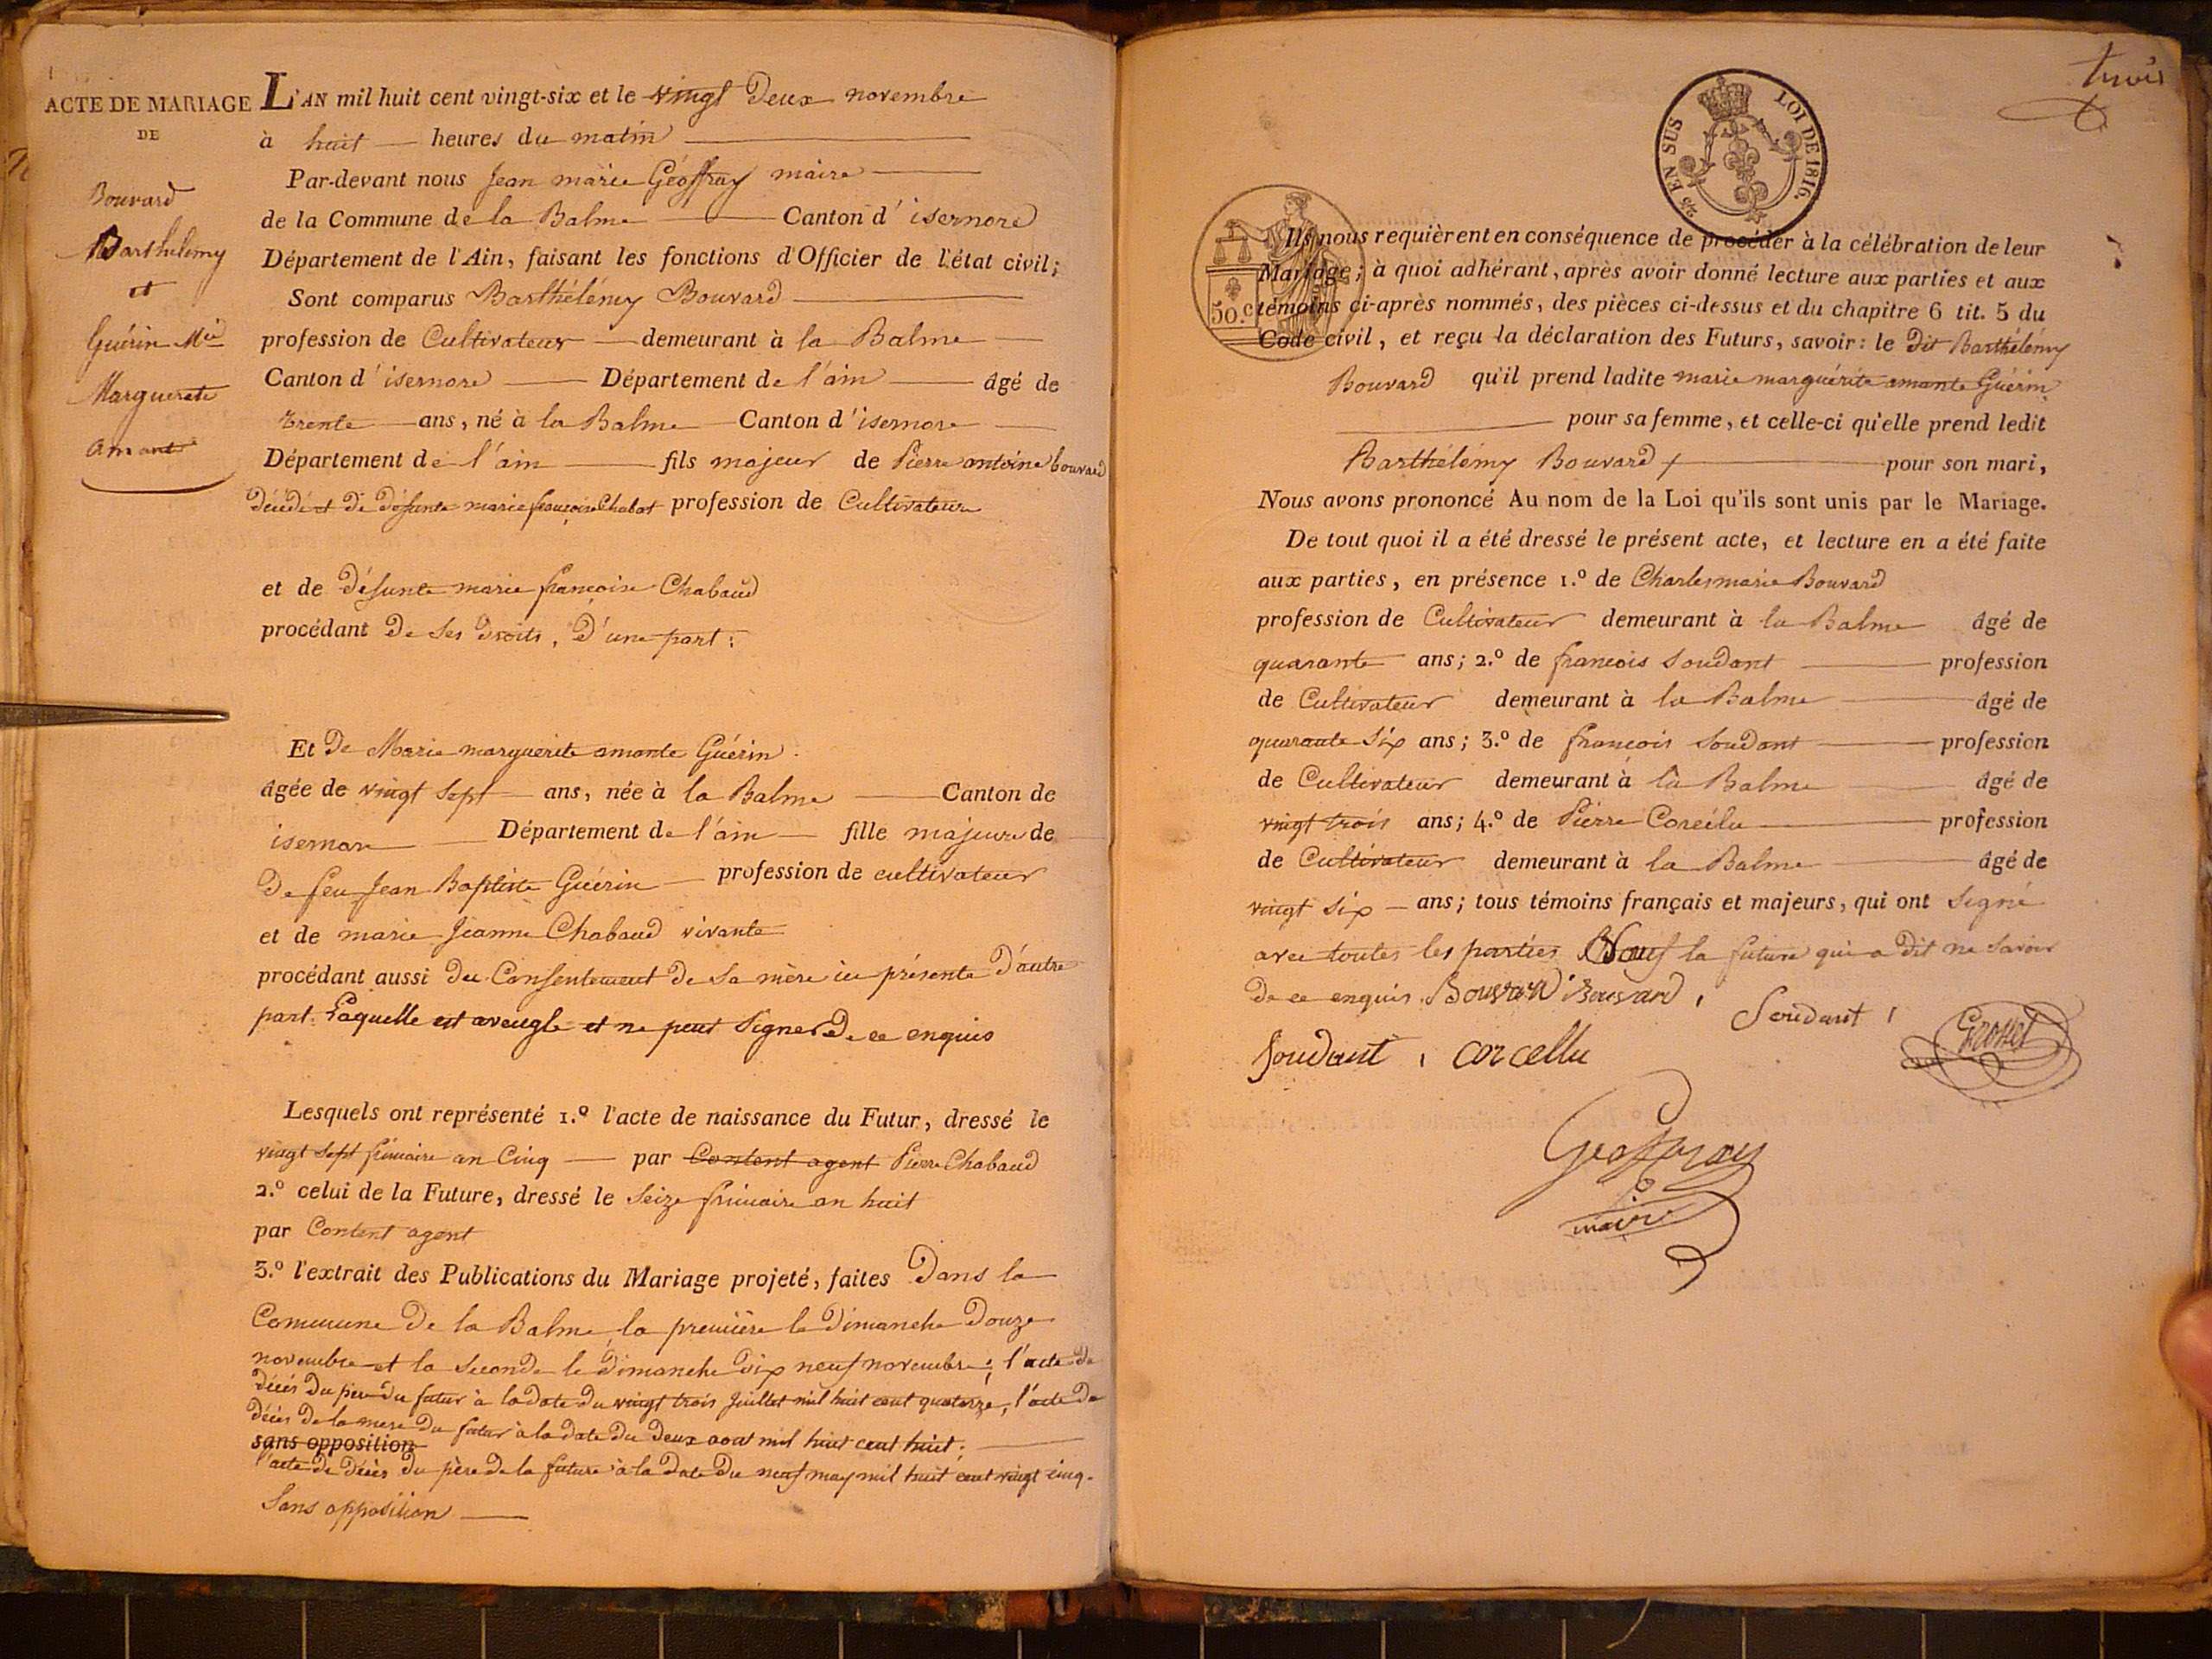 ACTE DE MARIAGE
DE
Bouvard
Barthelemy
et
Guérin Mie
Marguerete
amante
L'AN mil huit cent vingt-six et le vingt Deux novembre
à huit heures du matin
Par-devant nous Jean marie Géoffray maire
de la Commune de la Balme Canton d' isernore
Département de l'Ain, faisant les fonctions d'Officier de l'état civil;
Sont comparus Barthélémy Bouvard
profession de Cultivateur demeurant à la Balme
Canton d' isernore Département de l'ain âgé de
trente ans, né à la Balme Canton d'isernore
Département de l'ain fils majeur de Pierre antoine bouvard
décédé et de défunte marie françoise Chabot profession de Cultivateur
et de défunte marie françoise Chabaud
procédant de ses droits, d'une part:
Et de Marie marguerite amante Guérin.
âgée de vingt sept ans, née à la Balme Canton de
isernore Département de l'ain fille majeure de
De feu Jean Baptiste Guérin profession de cultivateur
et de marie Jeanne Chabaud vivante
procédant aussi du Consentement de sa mère ici présente d'autre
part. Laquelle est aveugle et ne peut signer de ce enquis
Lesquels ont représenté 1.º l'acte de naissance du Futur, dressé le
vingt sept frimaire an Cinq par Content agent Pierre Chabaud
2.º celui de la Future, dressé le seize frimaire an huit
par Content agent
3.º l'extrait des Publications du Mariage projeté, faites Dans la
Commune de la Balme la première le dimanche Douze
novembre et la seconde le dimanche dix neuf novembre; l'acte de
décés du père du futur à la date du vingt trois Juillet mil huit cent quatorze, l'acte de
décés de la mere du futur à la date du deux aoat mil huit cent huit;
sans opposition
l'acte de décès du père de la future à la date du neuf may mil huit cent vingt cinq.
Sans opposition
trois
EN SUS LOI DE 1816.
50.c
Ils nous requièrent en conséquence de procéder à la célébration de leur
Mariage; à quoi adhérant, après avoir donné lecture aux parties et aux
témoins ci-après nommés, des pièces ci-dessus et du chapitre 6 tit. 5 du
Code civil, et reçu la déclaration des Futurs, savoir: le dit Barthélémy
Bouvard qu'il prend ladite marie marguérite amante Guérin
pour sa femme, et celle-ci qu'elle prend ledit
Barthélémy Bouvard pour son mari,
Nous avons prononcé Au nom de la Loi qu'ils sont unis par le Mariage.
De tout quoi il a été dressé le présent acte, et lecture en a été faite
aux parties, en présence 1.º de Charles marie Bouvard
profession de Cultivateur demeurant à la Balme âgé de
quarante ans; 2.º de françois Soudant profession
de Cultivateur demeurant à la Balme âgé de
quarante six ans; 3.º de françois Soudant profession
de Cultivateur demeurant à la Balme âgé de
vingt trois ans; 4.º de Pierre profession
de Cultivateur demeurant à la Balme âgé de
vingt six ans; tous témoins français et majeurs, qui ont signé
avec toutes les parties Sauf la future qui a dit ne savoir
de ce enquis. Bouvard Bouvard, Soudant,
Soudant, corcellu
Grosset
Geoffray
maire